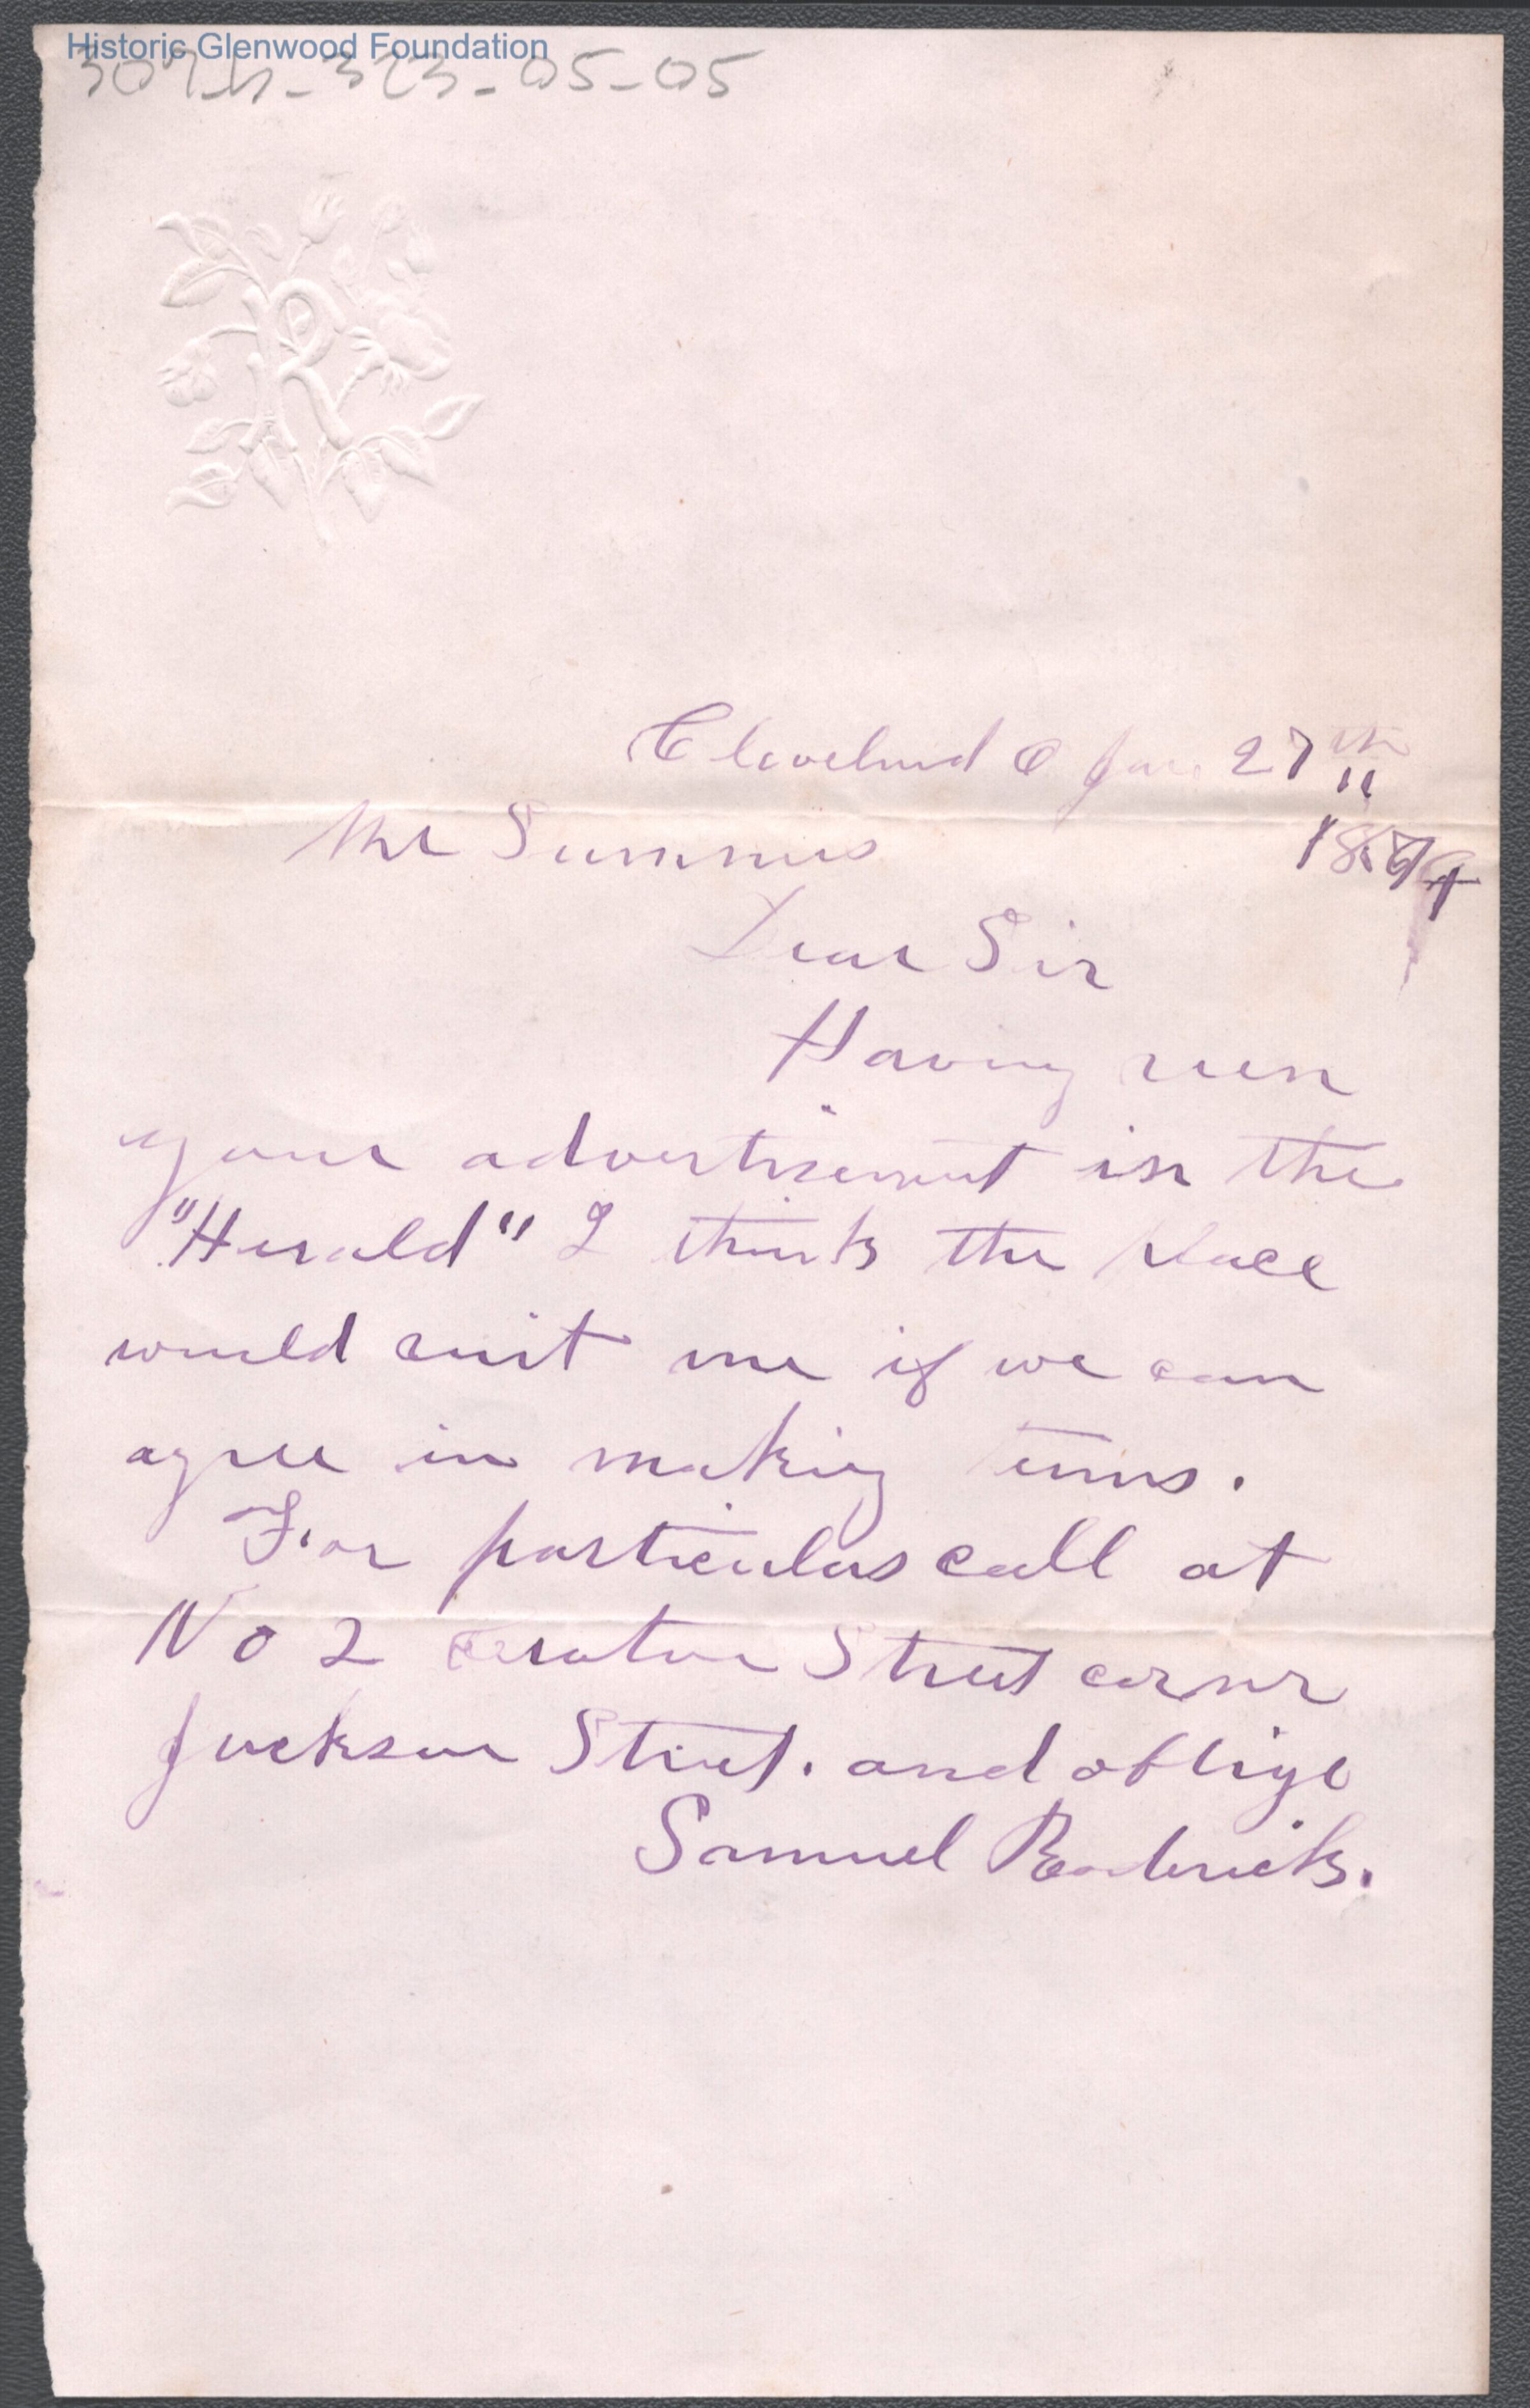 Historic Glenwood Foundation
323-05-05
R
Cleveland O Jan 27th
Mr
Dear Sir
Having seen
your advertisement in the
"Herald" I think the place
would suit me if we can
agree in making terms.
For particulars call at
No 2 Street corner
Jackson Street. and oblige
Samuel